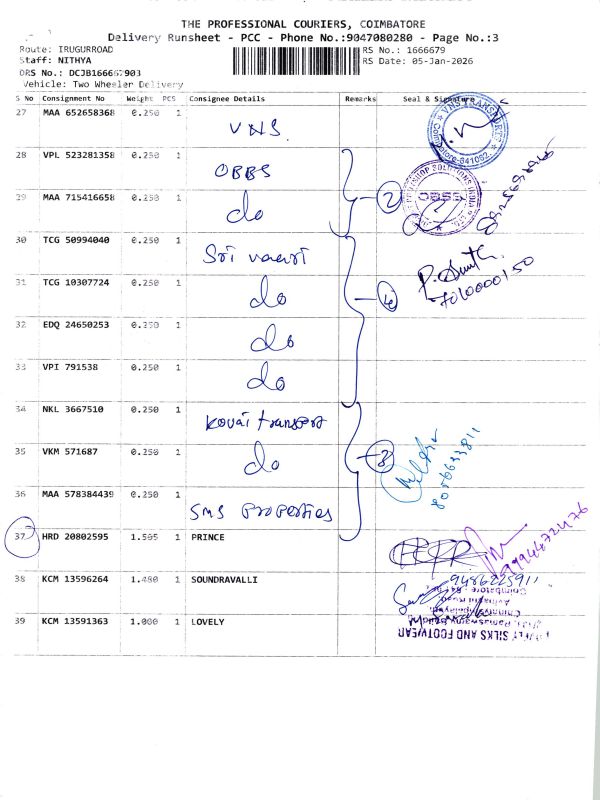 THE PROFESSIONAL COURIERS, COIMBATORE
Delivery Runsheet - PCC - Phone No.:9047080280 - Page No.:3
Route: IRUGURROAD RS No.: 1666679
Staff: NITHYA RS Date: 05-Jan-2026
DRS No.: DCJB166667903
Vehicle: Two Wheeler Delivery
S No Consignment No Weight PCS Consignee Details Remarks Seal & Signature
27 MAA 652658368 0.250 1 VNS
VNS TRANSPORTS
Coimbatore-641062.
28 VPL 523281358 0.250 1 OBBS
29 MAA 715416658 0.250 1 do 2
OBSS
30 TCG 50994040 0.250 1 Sri vaari
31 TCG 10307724 0.250 1 do 4
7010000150
32 EDQ 24650253 0.250 1 do
33 VPI 791538 0.250 1 do
34 NKL 3667510 0.250 1 kovai transport
35 VKM 571687 0.250 1 do 3
8056633811
36 MAA 578384439 0.250 1 SMS Properties
37 HRD 20802595 1.505 1 PRINCE
9994672476
38 KCM 13596264 1.480 1 SOUNDRAVALLI
9486225911
39 KCM 13591363 1.000 1 LOVELY
LOVELY SILKS AND FOOTWEAR